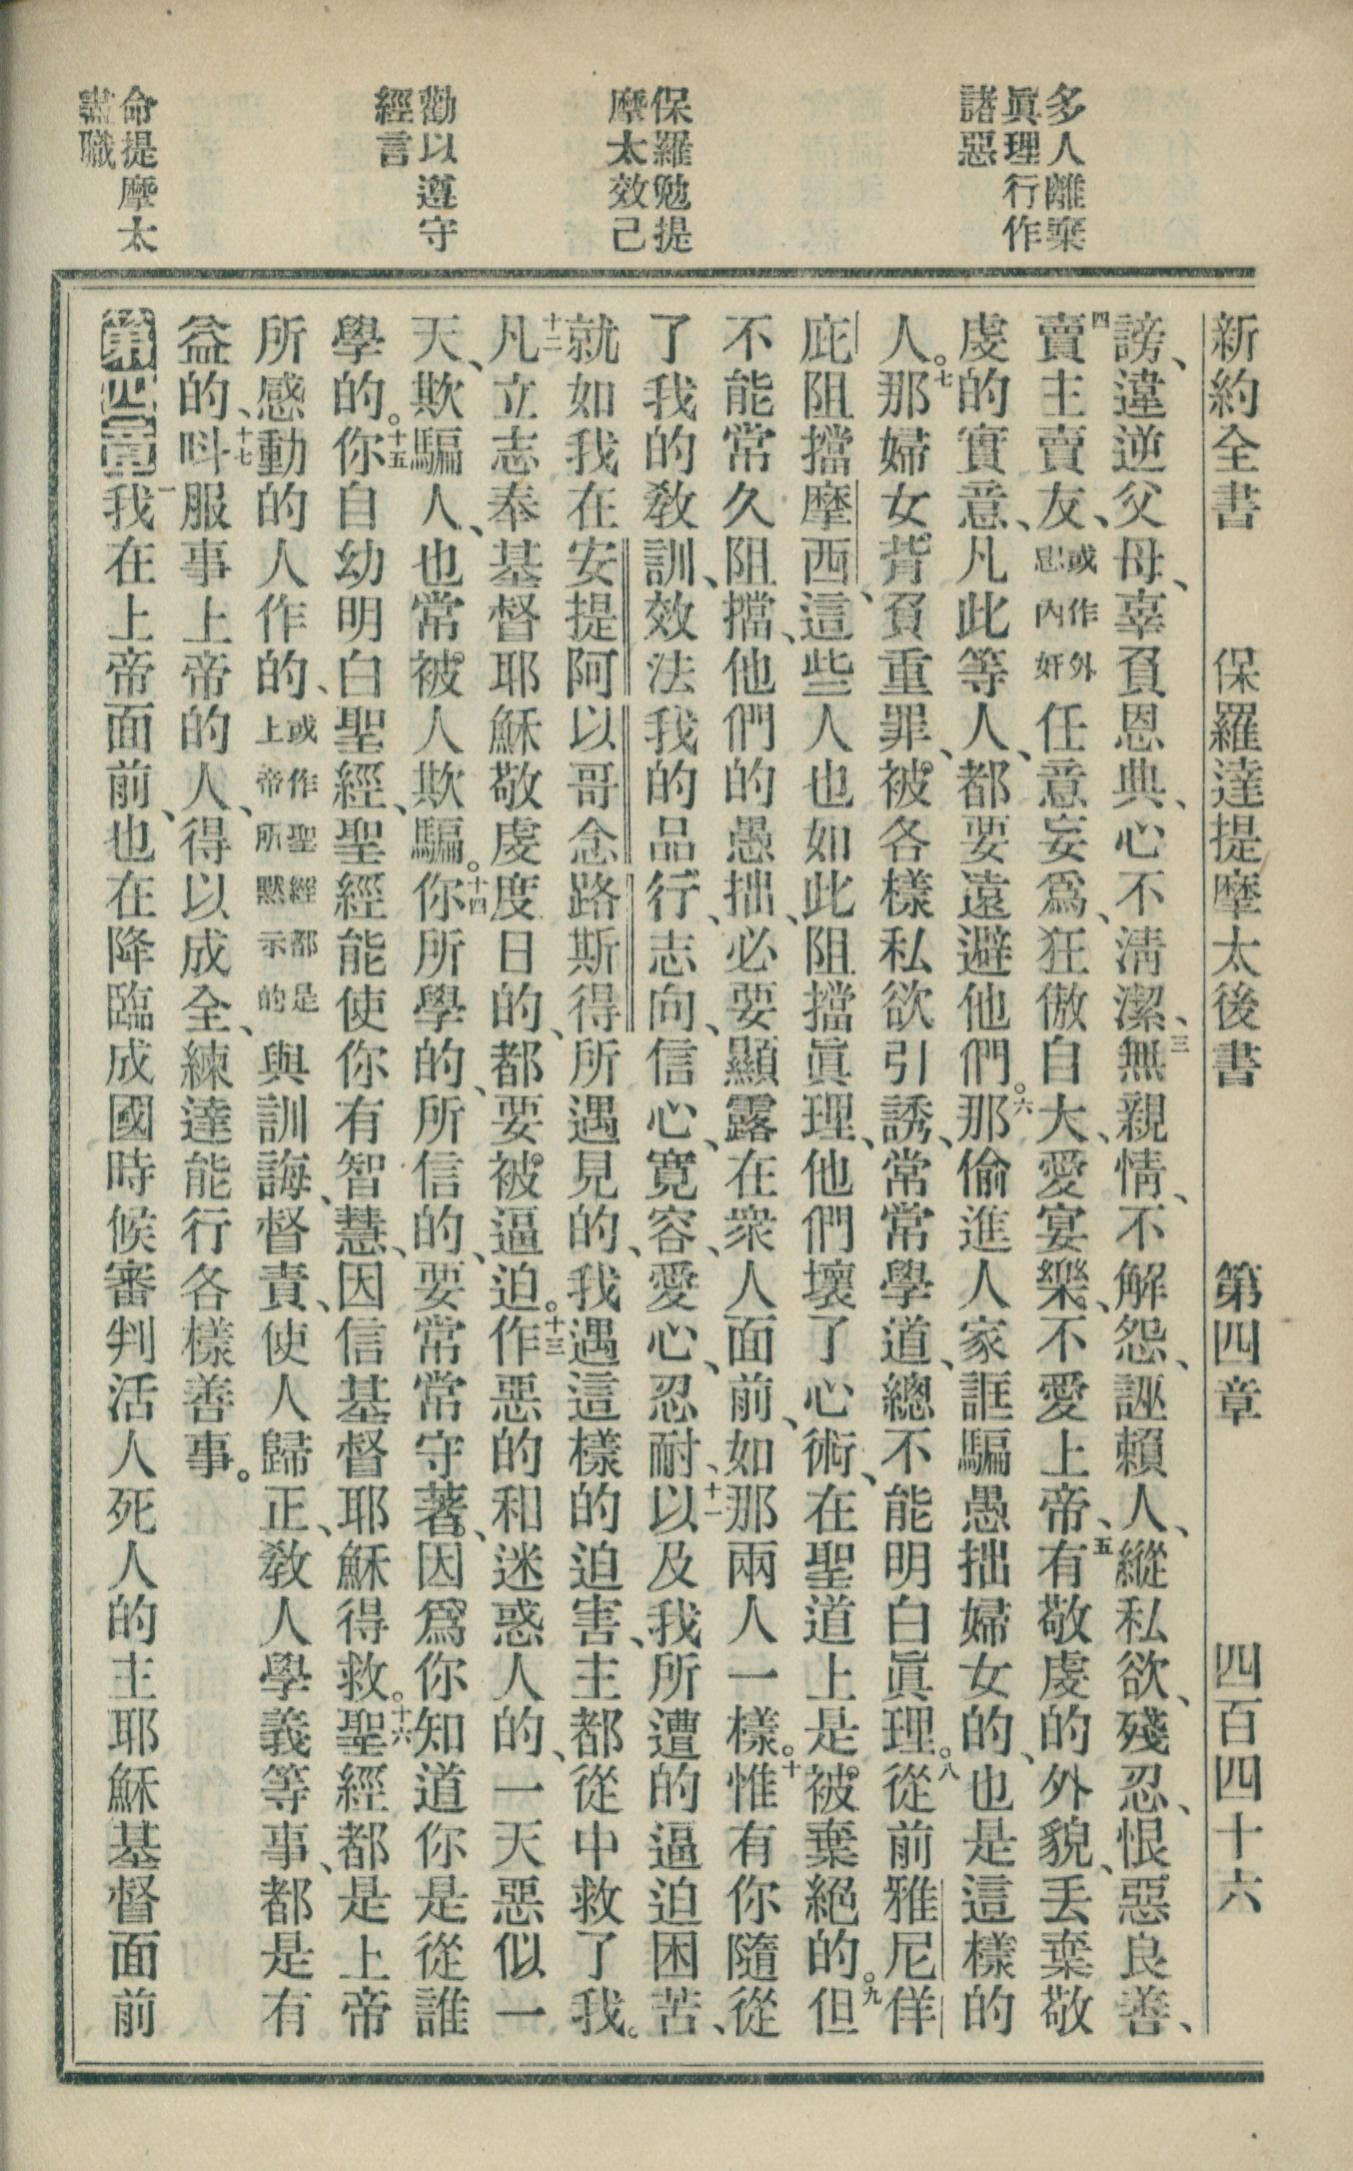 多人離棄
眞理行作
諸惡
保羅勉提
摩太效己
勸以遵守
經言
命提摩太
盡職
新約全書 保羅達提摩太後書 第四章 四百四十六
謗、違逆父母、辜負恩典、心不淸潔、三無親情、不解怨、誣賴人、縱私欲、殘忍、恨惡良善、
四賣主賣友、或作外思內奸任意妄爲、狂傲自大、愛宴樂、不愛上帝、五有敬虔的外貌、丟棄敬
虔的實意、凡此等人、都要遠避他們。六那偷進人家誆騙愚拙婦女的、也是這樣的
人。七那婦女背負重罪、被各樣私欲引誘、常常學道、總不能明白眞理。八從前雅尼佯
庇阻擋摩西、這些人也如此阻擋眞理、他們壞了心術、在聖道上是被棄絕的。九但
不能常久阻擋、他們的愚拙、必要顯露在衆人面前、如那兩人一樣。十惟有你隨從
了我的敎訓、效法我的品行、志向、信心、寬容、愛心、忍耐、十一以及我所遭的逼迫困苦、
就如我在安提阿以哥念路斯得所遇見的、我遇這樣的迫害、主都從中救了我。
十二凡立志奉基督耶穌敬虔度日的、都要被逼迫。十三作惡的和迷惑人的、一天惡似一
天、欺騙人、也常被人欺騙。十四你所學的、所信的、要常常守著、因爲你知道你是從誰
學的。十五你自幼明白聖經、聖經能使你有智慧、因信基督耶穌得救。十六聖經都是上帝
所感動的人作的、或作聖經都是上帝所默示的與訓誨、督責、使人歸正、敎人學義等事、都是有
益的、十七呌服事上帝的人、得以成全、練達能行各樣善事。
第四章一我在上帝面前、也在降臨成國時候審判活人死人的主耶穌基督面前